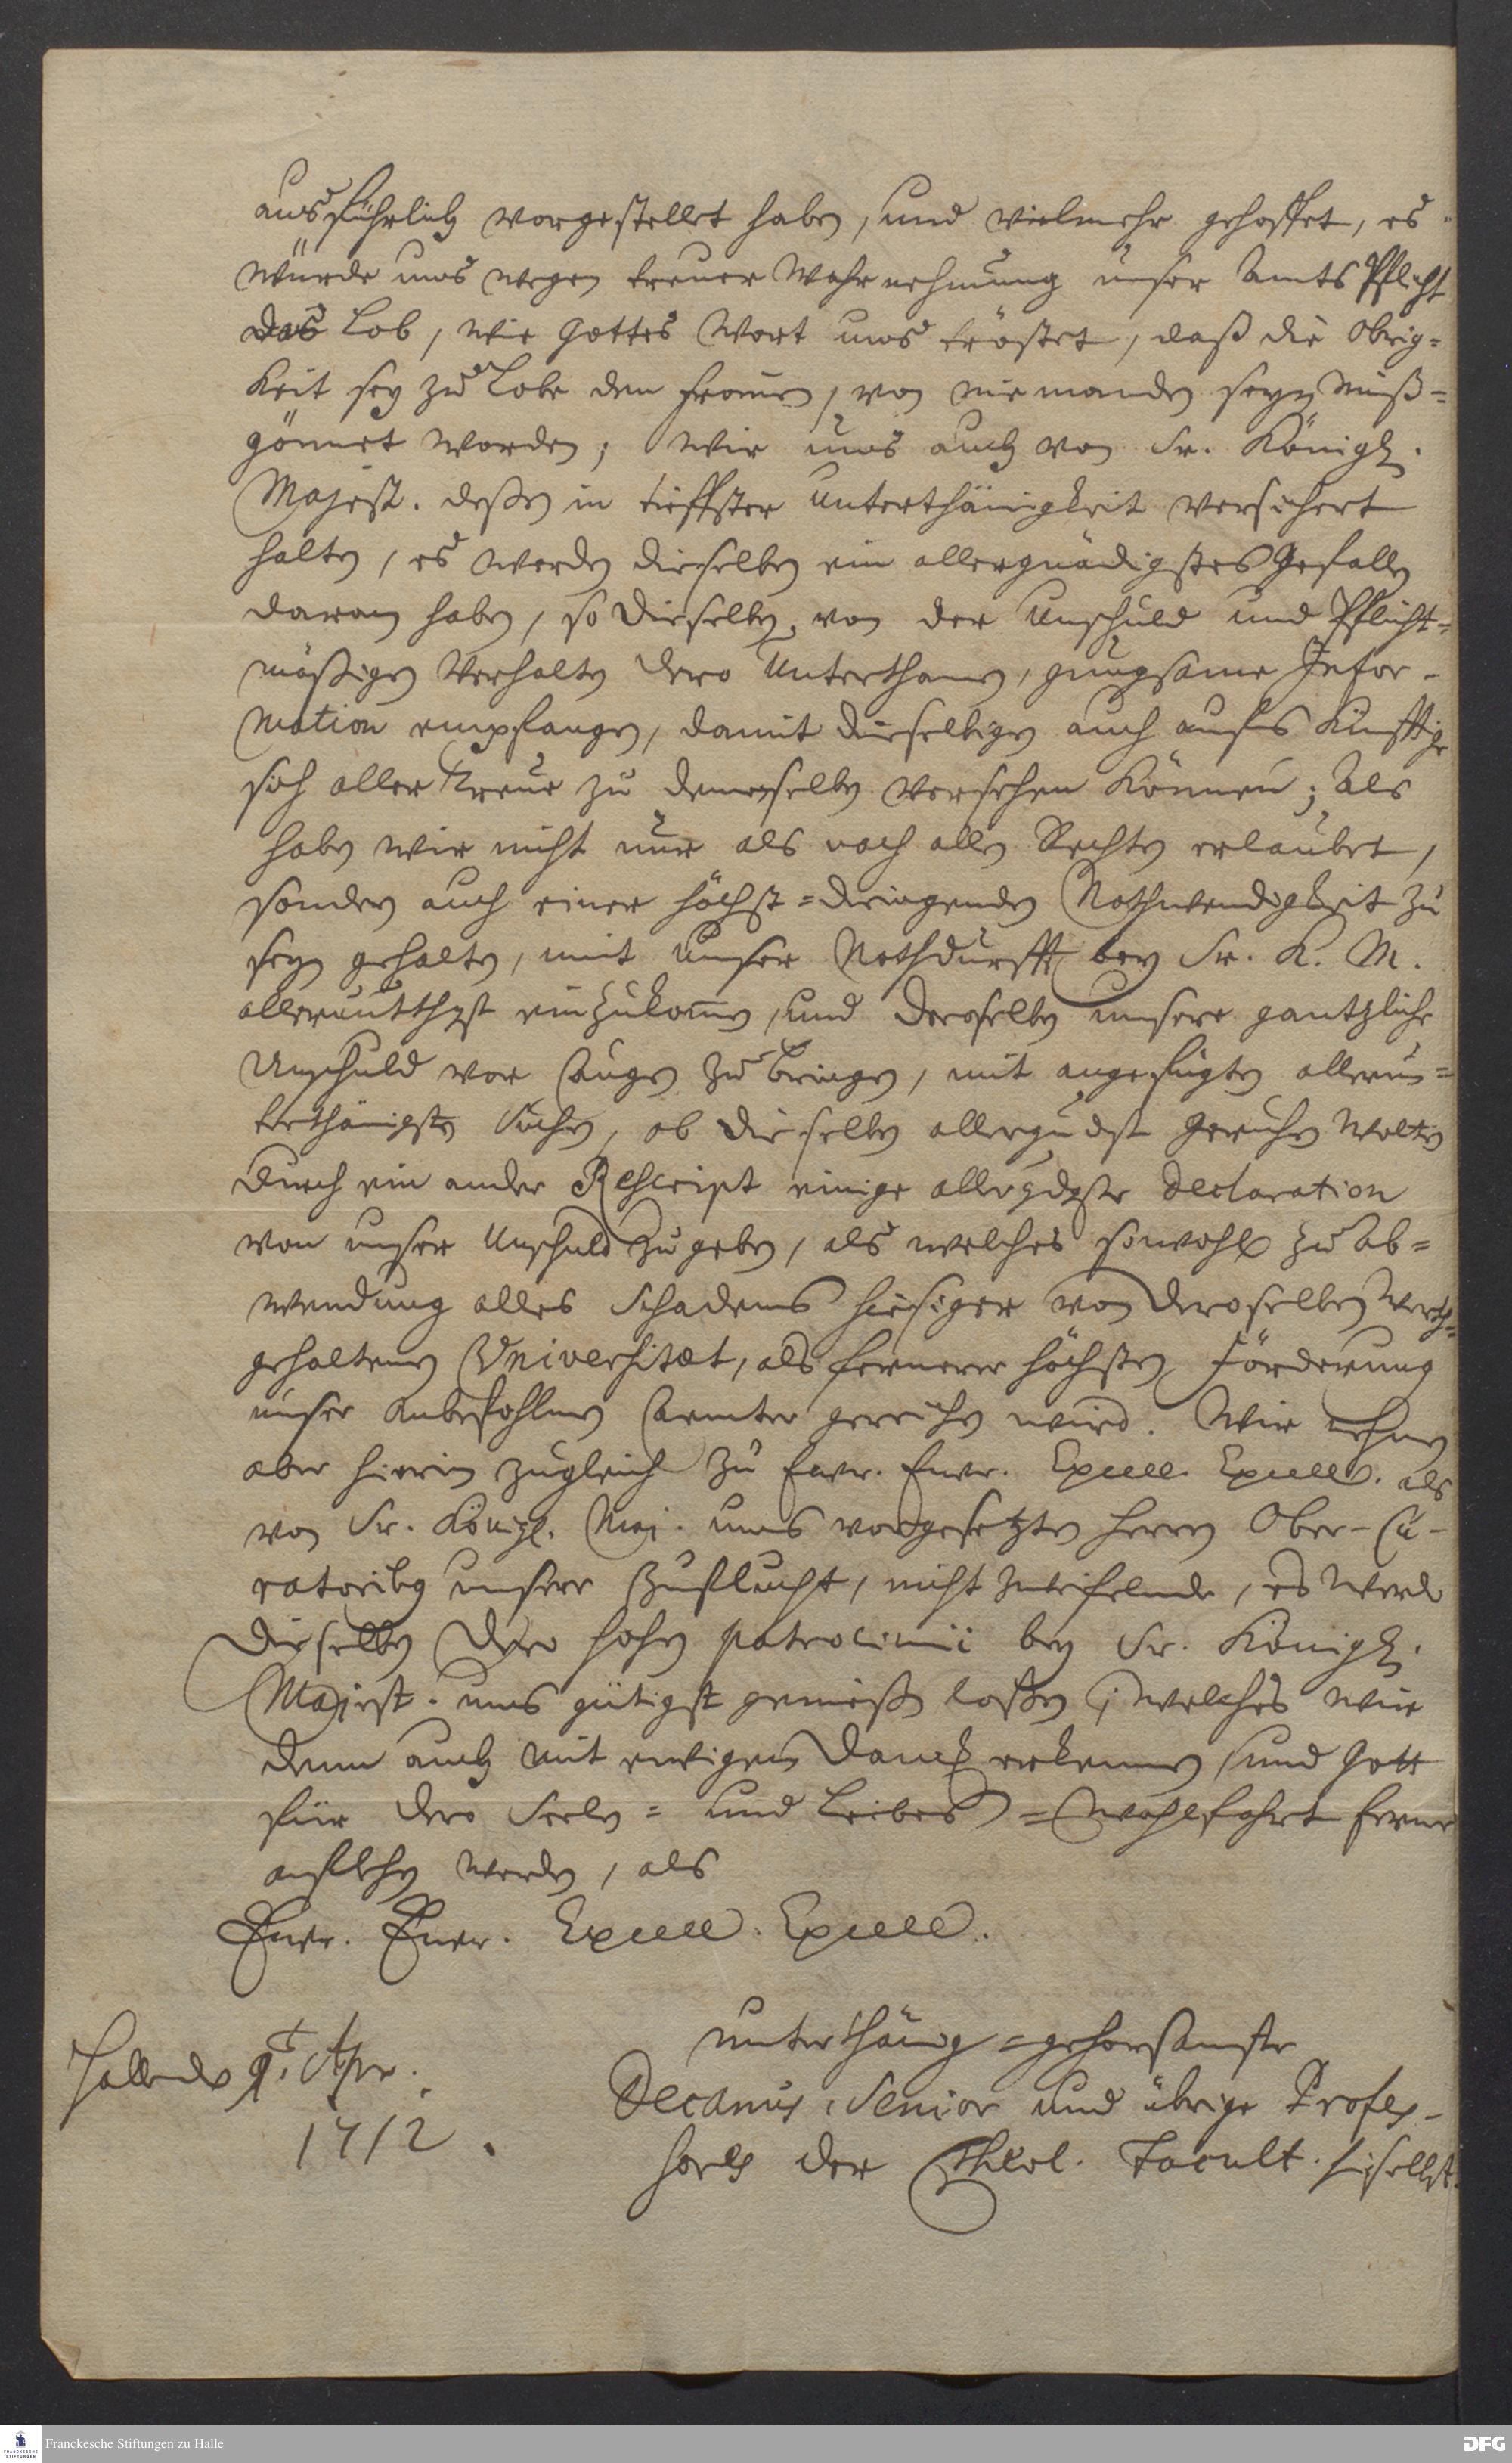 ausführlich vorgestellet haben, und vielmehr gehoffet, es
würde uns wegen treuer Wahrnehmung unser Amts Pflicht
das Lob, wie Gottes Wort uns tröstet, daß die Obrig=
keit sey zu Lobe den fromen, von niemanden seyn miß=
gönnet worden; Wir uns auch von Sr. Königl.
Majest. deßen in tieffster Unterthänigkeit versichert
halten, es werden dieselben ein allergnädigstes Gefallen
daran haben, so dieselben von der Unschuld und Pflicht=
mäßigen Verhalten dero Unterthanen, gnugsame Infor-
mation empfangen, damit dieselbigen auch aufs künfftige
sich aller Treue zu denenselben versehen können; Als
haben wir nicht nur als nach allen Rechten erlaubet,
sondern auch einer höchst=dringenden Nothwendigkeit zu
seyn gehalten, mit unser Nothdurfft bey Sr. K. M.
allerunterthgst einzukomen, und deroselben unsere gäntzliche
Unschuld vor Augen zu bringen, mit angefügten allerun=
terthänigsten Suchen, ob dieselben allergndst geruhen wolten
durch ein ander Rescript einige allergdgste Declaration
von unser Unschuld zu geben, als welches sowohl zu Ab=
wendung alles Schadens hiesiger von deroselben werth=
gehaltenen Universitæt, als fernerer höchsten Förderung
unser anbefohlnen Aemter gereichen wird. Wir nehmen
aber hierin zugleich zu Ewr. Ewr. Excell. Excell. als
von Sr. Königl. Maj. uns vorgesetzten Herren Ober-Cu-
ratoribus unsere Zuflucht, nicht zweifelnde, es werden
dieselben dero hohen patrocinii bey Sr. Königl.
Majest. uns gütigst genießen laßen; welches wir
denn auch mit ewigem Danck erkennen, und Gott
für dero Seelen= und Leibes=Wohlfahrt ferner
anflehen werden, als
Ewr. Ewr. Excell. Excell.
unterthänig=gehorsamste
Halle den 9. Apr.
Decanus, Senior und übrige Profes-
1712.
sores der Theol. Facult. hieselbst.
Franckesche Stiftungen zu Halle
FRANCKESCHE STIFTUNGEN
DFG